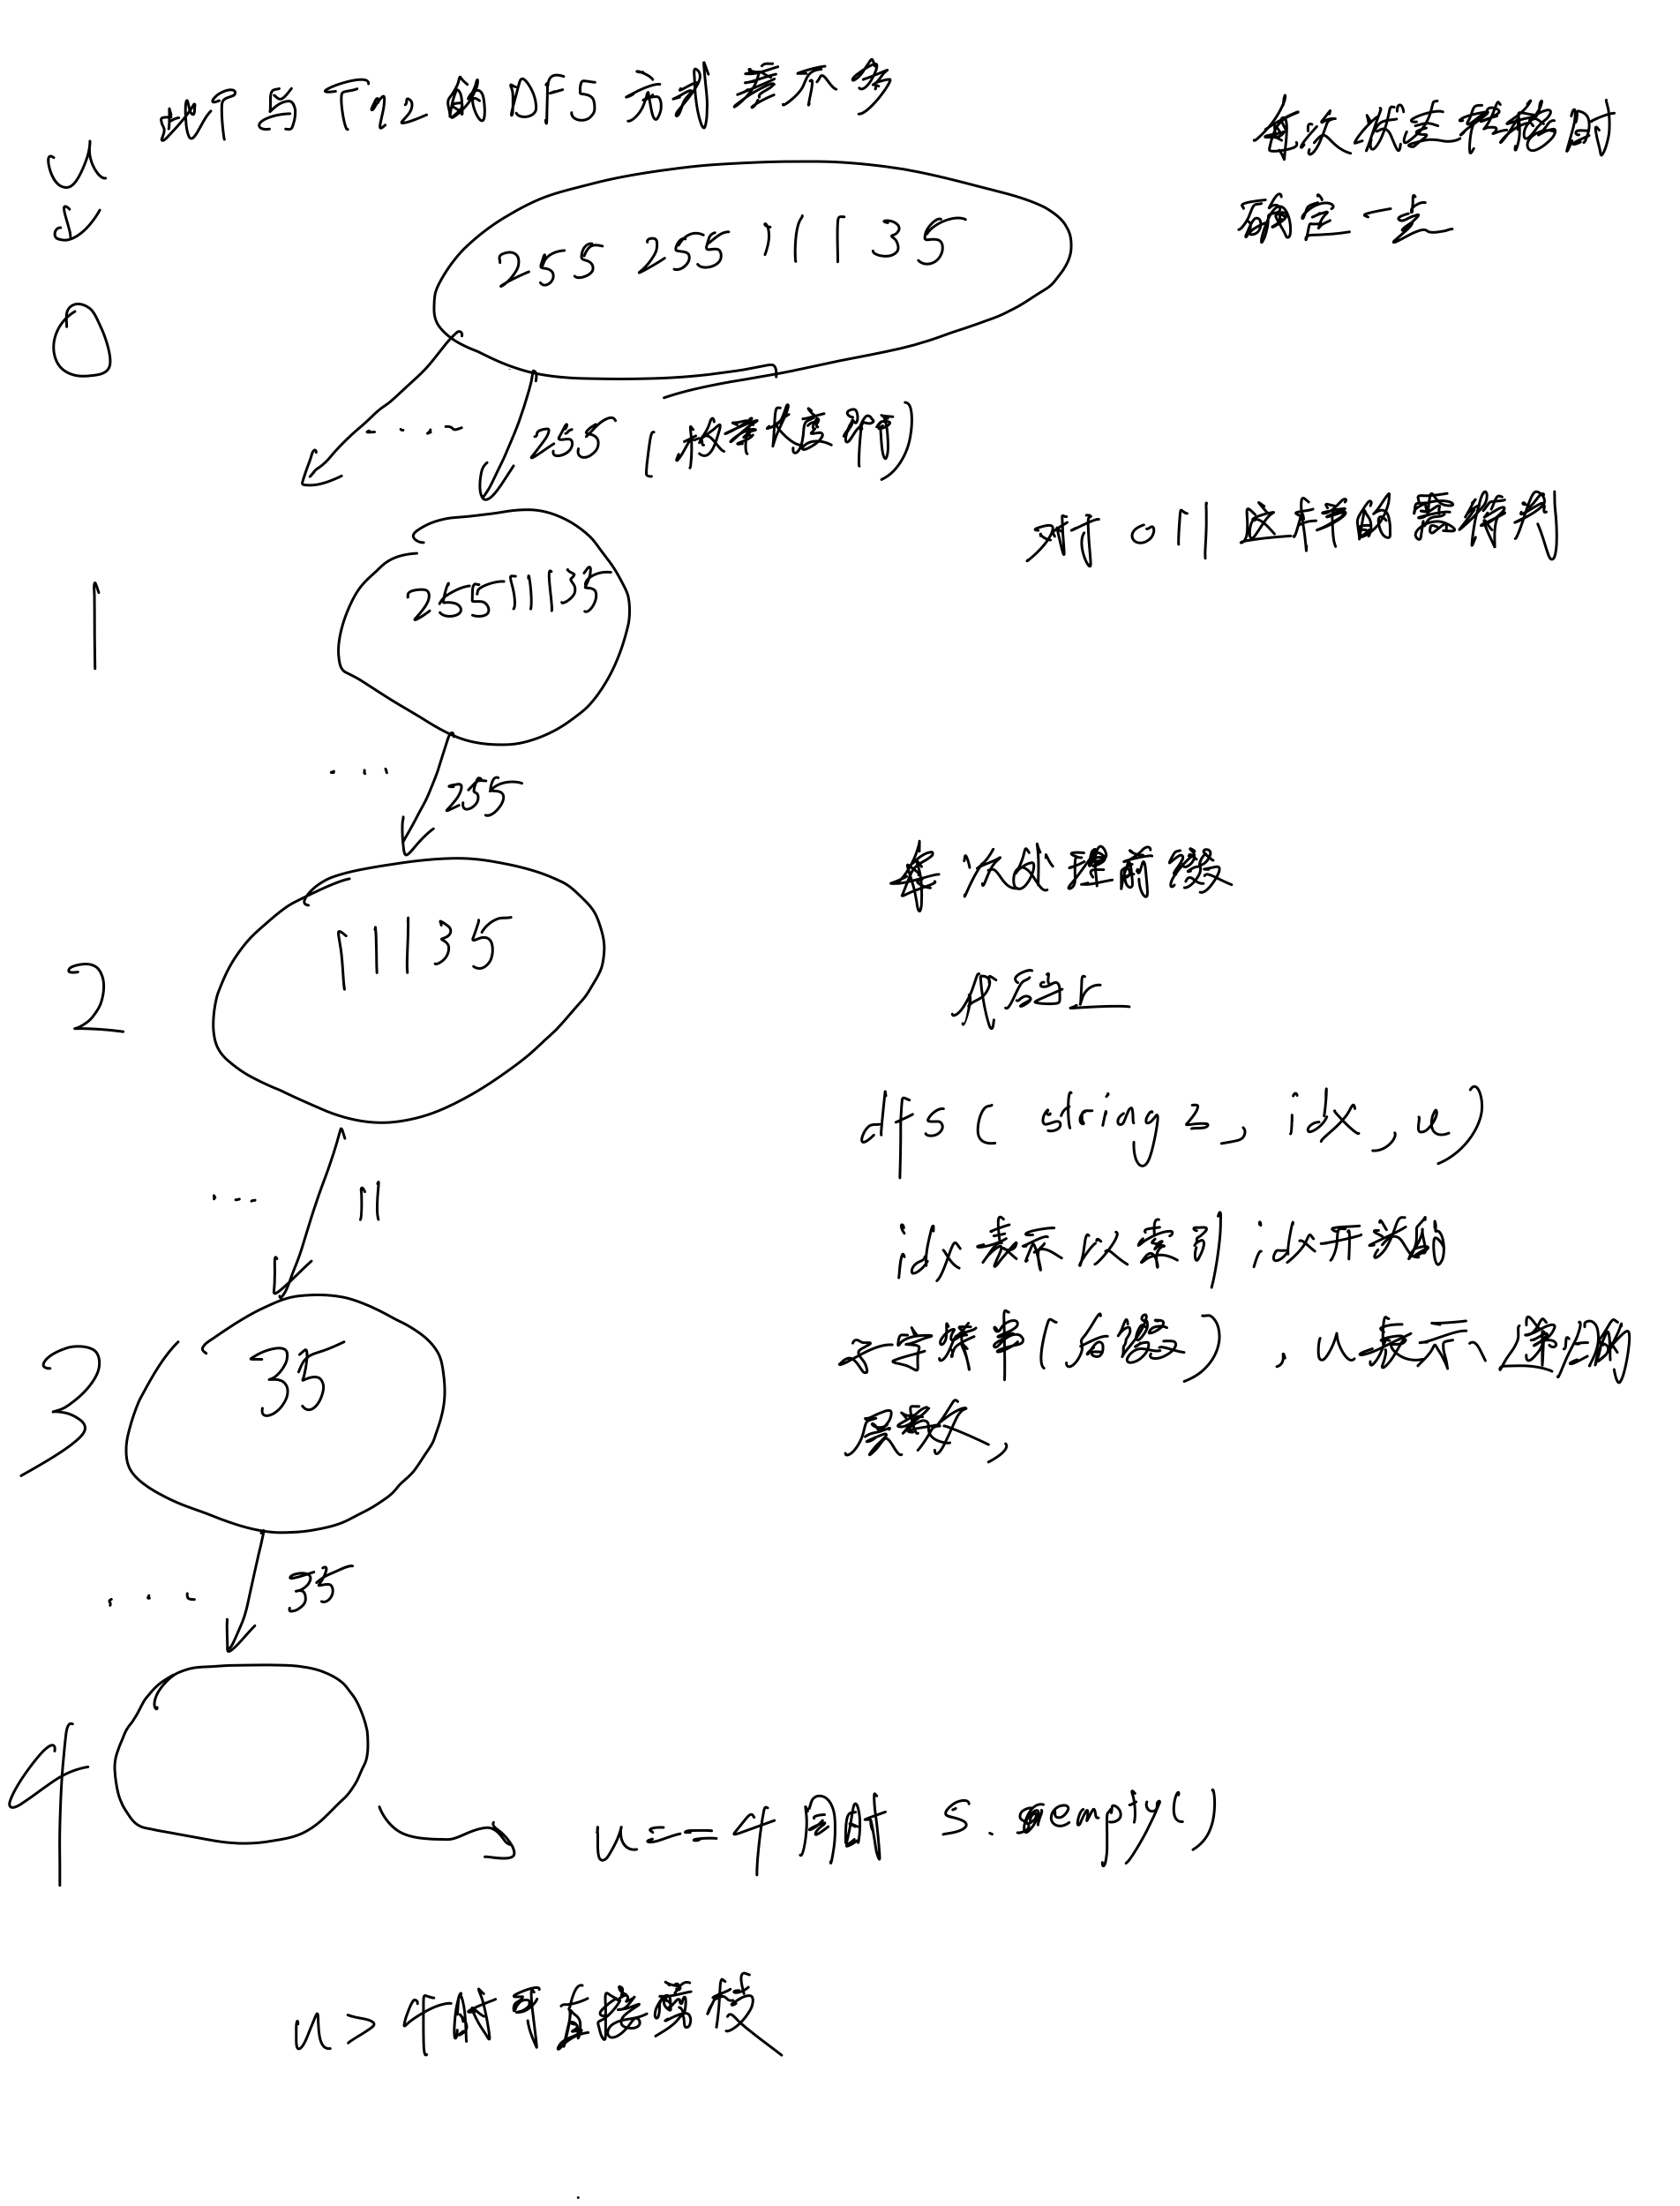 u
与T2的DFS方式差不多
每次状态转移时
确定一点
0
255 255 11135
....
255 (枚举长度即可)
对于011这样的需特判
1
25511135
...
255
每次处理前缀
2
11135
代码上
dfs( string s, idx, u)
... 11
idx表示以索引idx开头的
子字符串(后缀), u表示递归的
层数,
3
35
... 35
4
u==4同时 s.empty()
u>4时可直接剪枝